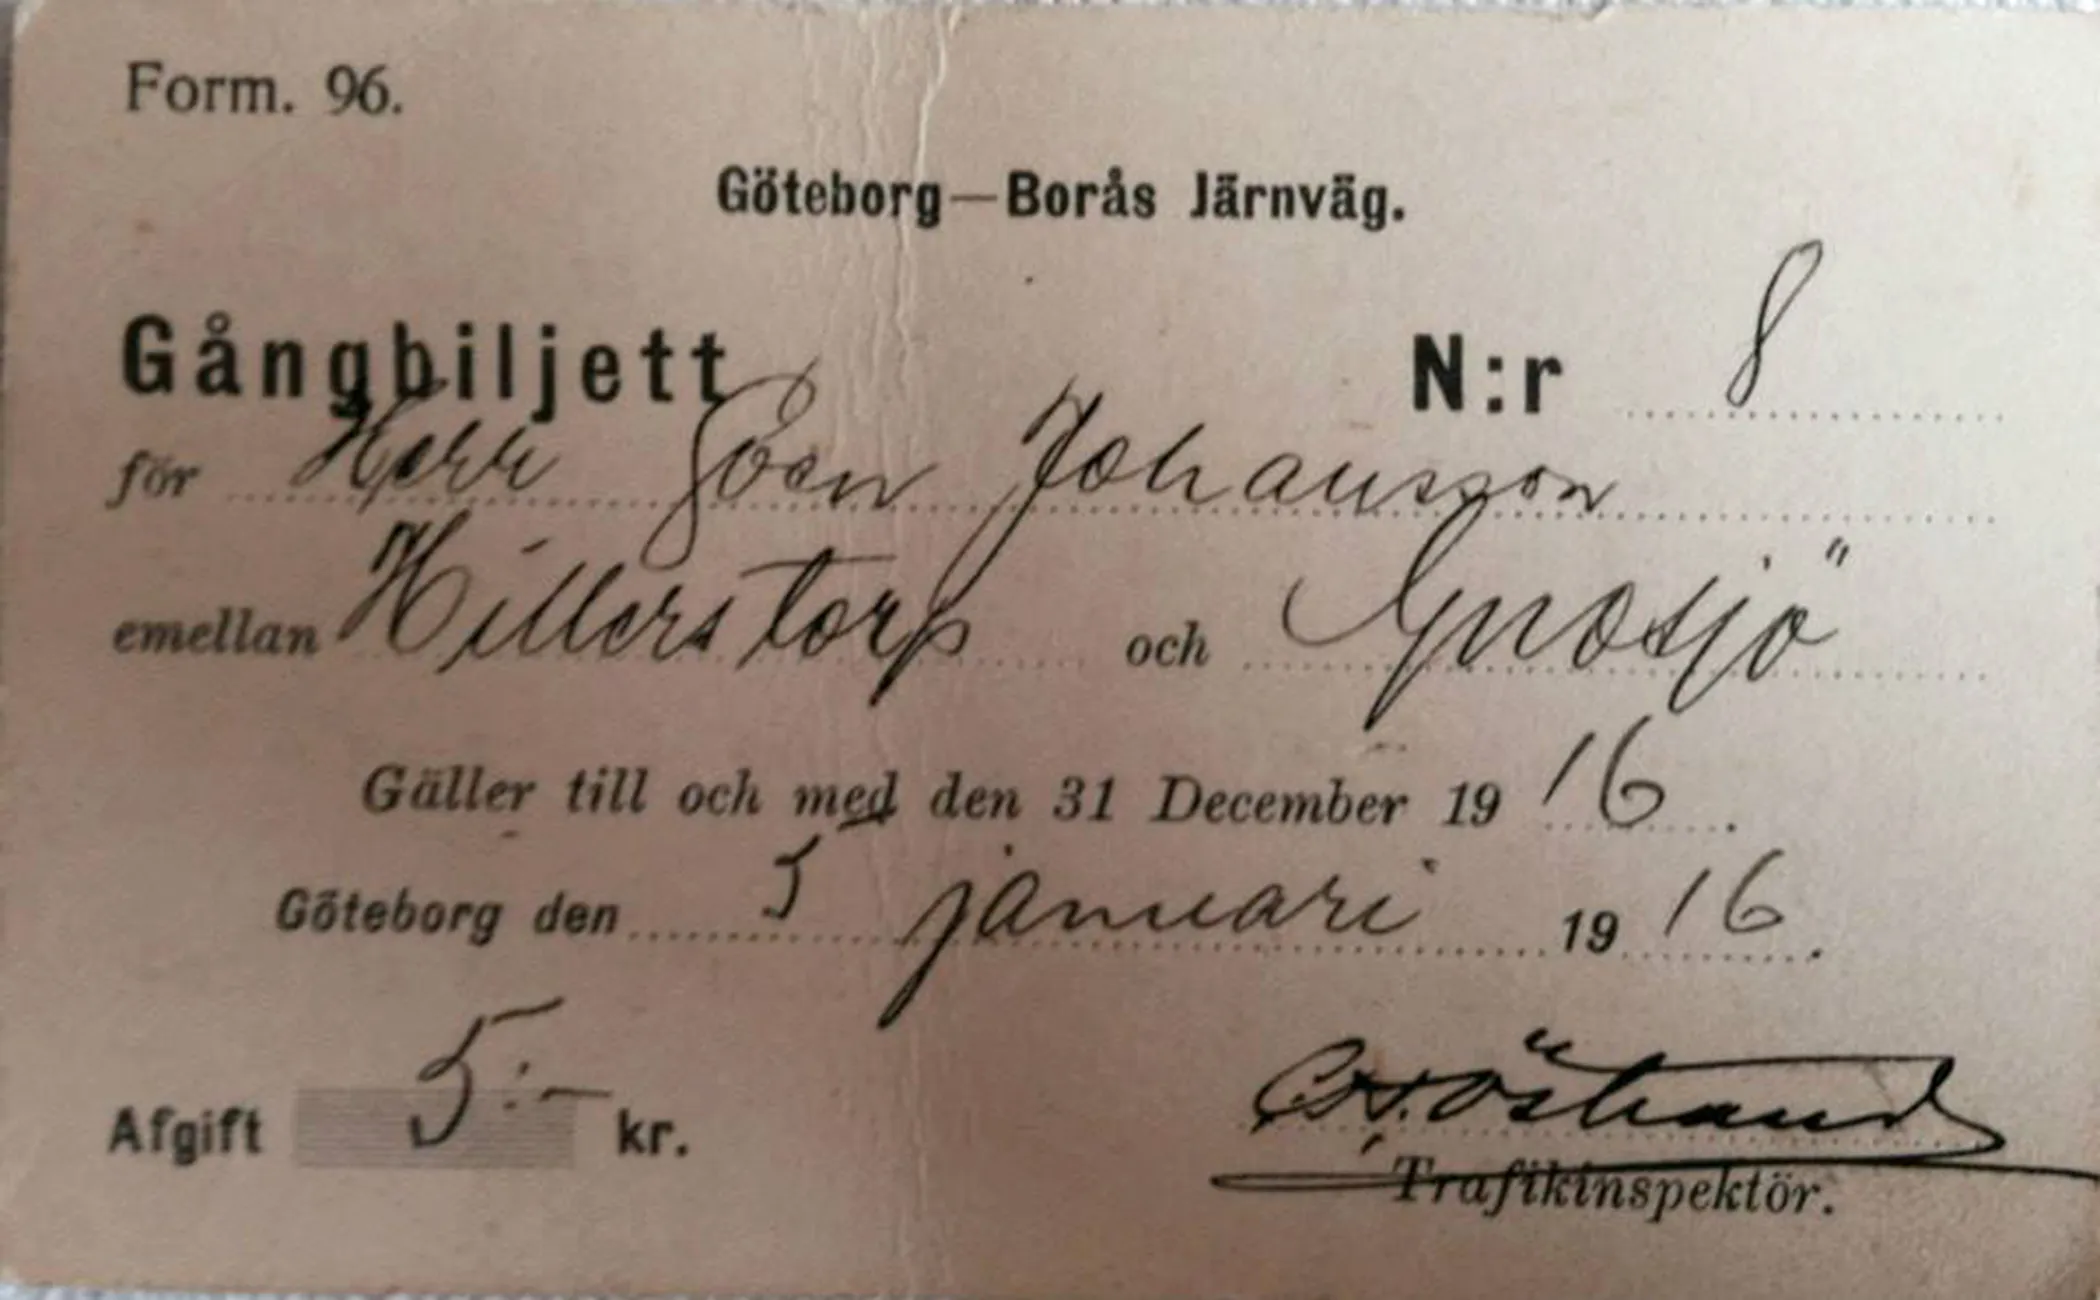 Form. 96.
Göteborg—Borås Järnväg.
Gångbiljett N:r 8
för Herr Sven Johansson
emellan Hillerstorp och Gnosjö
Gäller till och med den 31 December 1916.
Göteborg den 5 januari 1916.
Afgift 5:– kr.
Östrand
Trafikinspektör.